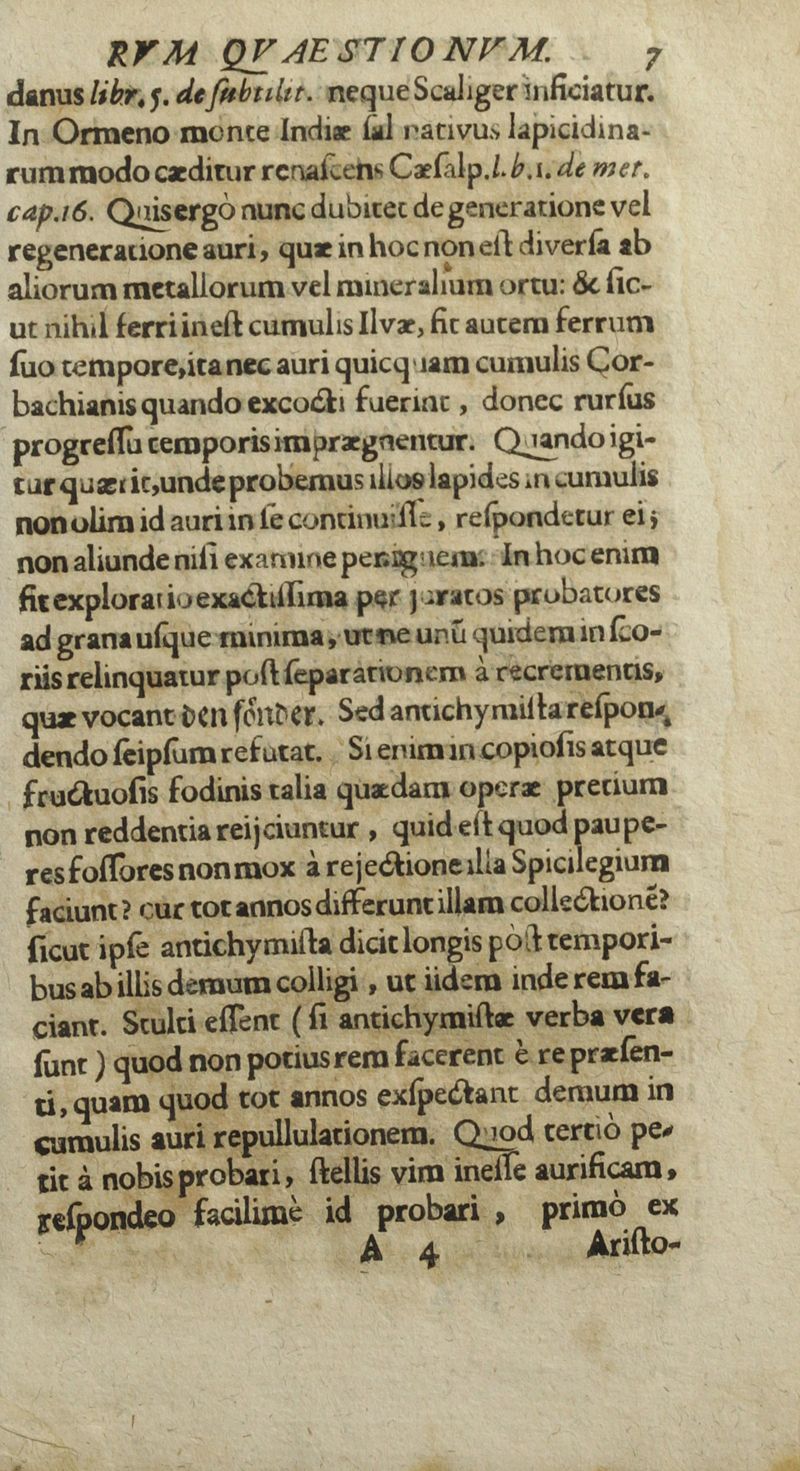 RVM QVAESTIONVM. 7
danus libr. 5. de subtilit. neque Scaliger inficiatur.
In Ormeno monte Indiæ ſal nativus lapicidina-
rum modo cæditur renaſcens Cæſalp. l. b. 1. de met.
cap. 16. Quis ergò nunc dubitet de generatione vel
regeneratione auri, quæ in hoc non eſt diverſa ab
aliorum metallorum vel mineralium ortu: & ſic-
ut nihil ferri ineſt cumulis Ilvæ, fit autem ferrum
ſuo tempore, ita nec auri quicquam cumulis Cor-
bachianis quando excocti fuerint, donec rurſus
progreſſu temporis imprægnentur. Quando igi-
tur quærit, unde probemus illos lapides in cumulis
non olim id auri in ſe continuiſſe, reſpondetur ei;
non aliunde niſi examine per ignem. In hoc enim
fit exploratio exactiſſima per juratos probatores
ad grana uſque minima, ut ne unũ quidem in ſco-
riis relinquatur poſt ſeparationem à recrementis,
quæ vocant den ſónder. Sed antichymiſta reſpon-
dendo ſeipſum refutat. Si enim in copioſis atque
fructuoſis fodinis talia quædam operæ pretium
non reddentia reijciuntur, quid eſt quod paupe-
res foſſores non mox à rejectione illa Spicilegium
faciunt? cur tot annos differunt illam collectionẽ?
ſicut ipſe antichymiſta dicit longis pòſt tempori-
bus ab illis demum colligi, ut iidem inde rem fa-
ciant. Stulti eſſent (ſi antichymiſtæ verba vera
ſunt) quod non potius rem facerent è re præſen-
ti, quam quod tot annos exſpectant demum in
cumulis auri repullulationem. Quod tertiò pe-
tit à nobis probari, ſtellis vim ineſſe aurificam,
reſpondeo facilimè id probari, primò ex
A 4 Ariſto-